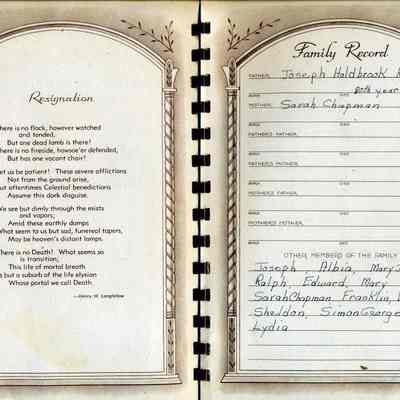 Resignation
There is no flock, however watched
and tended,
But one dead lamb is there!
There is no fireside, howsoe'er defended,
But has one vacant chair!
Let us be patient! These severe afflictions
Not from the ground arise,
But oftentimes Celestial benedictions
Assume this dark disguise.
We see but dimly through the mists
and vapors;
Amid these earthly damps
What seem to us but sad, funereal tapers,
May be heaven's distant lamps.
There is no Death! What seems so
is transition;
This life of mortal breath
Is but a suburb of the life elysian
Whose portal we call Death.
—Henry W. Longfellow
Family Record
FATHER: Joseph Holdbrook
BORN year
MOTHER: Sarah Chapman
BORN DIED
FATHER'S FATHER:
BORN DIED
FATHER'S MOTHER:
BORN DIED
MOTHER'S FATHER:
BORN DIED
MOTHER'S MOTHER:
BORN DIED
OTHER MEMBERS OF THE FAMILY
Joseph, Albia, Mary
Ralph, Edward, Mary
Sarah Chapman, Franklin,
Sheldon, Simon George
Lydia